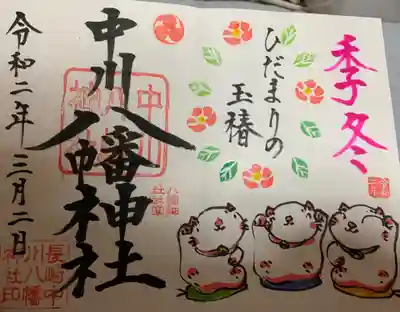 季冬
ひだまりの
玉椿
中川八幡神社
令和二年三月二日
長崎中
川八幡
神社印